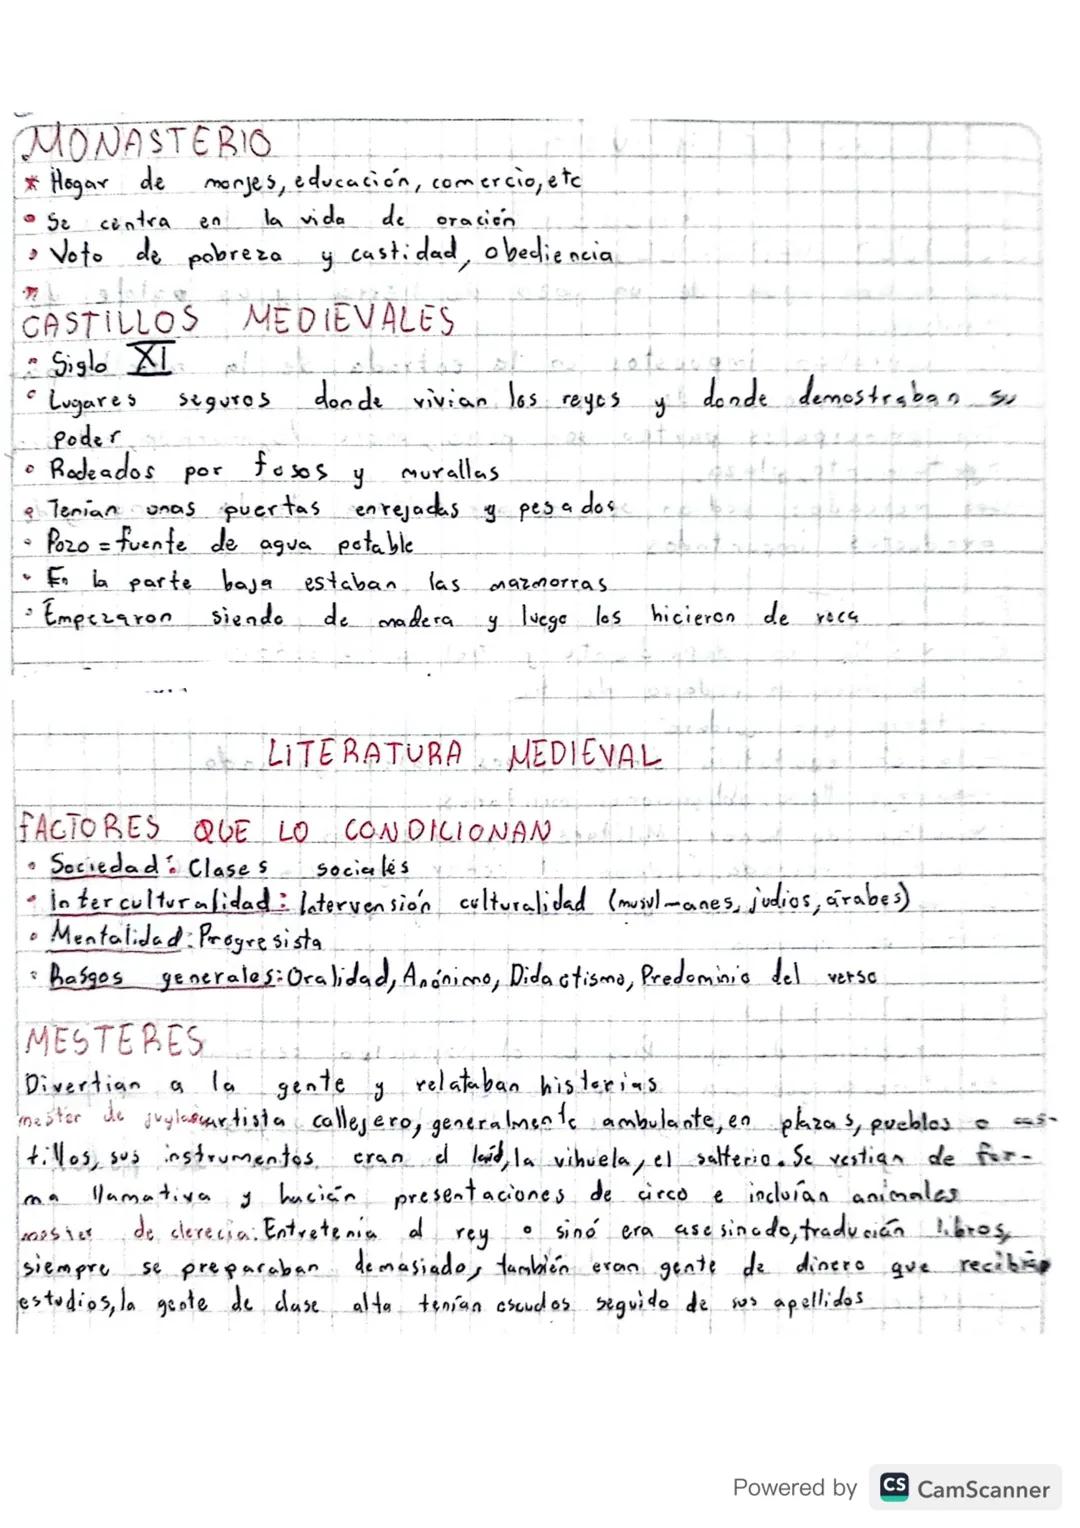 MONASTERIO
* Hogar de monjes, educación, comercio, etc
• Se centra en la vida de oración
• Voto de pobreza y castidad, obediencia
CASTILLOS MEDIEVALES
• Siglo XI
• Lugares seguros donde vivian los reyes y donde demostraban su
poder
• Rodeados por fosos y murallas
• Tenían unas puertas enrejadas y pesados
• Pozo = fuente de agua potable
• En la parte baja estaban las mazmorras
• Empezaron siendo de madera y luego los hicieron de roca
LITERATURA MEDIEVAL
FACTORES QUE LO CONDICIONAN
• Sociedad: Clases sociales
• Interculturalidad: Intervensión culturalidad (musul-anes, judios, árabes)
• Mentalidad: Progresista
• Rasgos generales: Oralidad, Anónimo, Didactismo, Predominio del verso
MESTERES
Divertian a la gente y relataban historias
mester de juglar artista callejero, generalmente ambulante, en plazas, pueblos o cas-
tillos, sus instrumentos eran el laúd, la vihuela, el salterio. Se vestian de for-
ma llamativa y hacián presentaciones de circo e incluían animales
mester de clerecia: Entretenia al rey o sinó era asesinado, traducián libros,
siempre se preparaban demasiado, también eran gente de dinero que recibian
estudios, la gente de clase alta tenían escudos seguido de sus apellidos
Powered by CS CamScanner